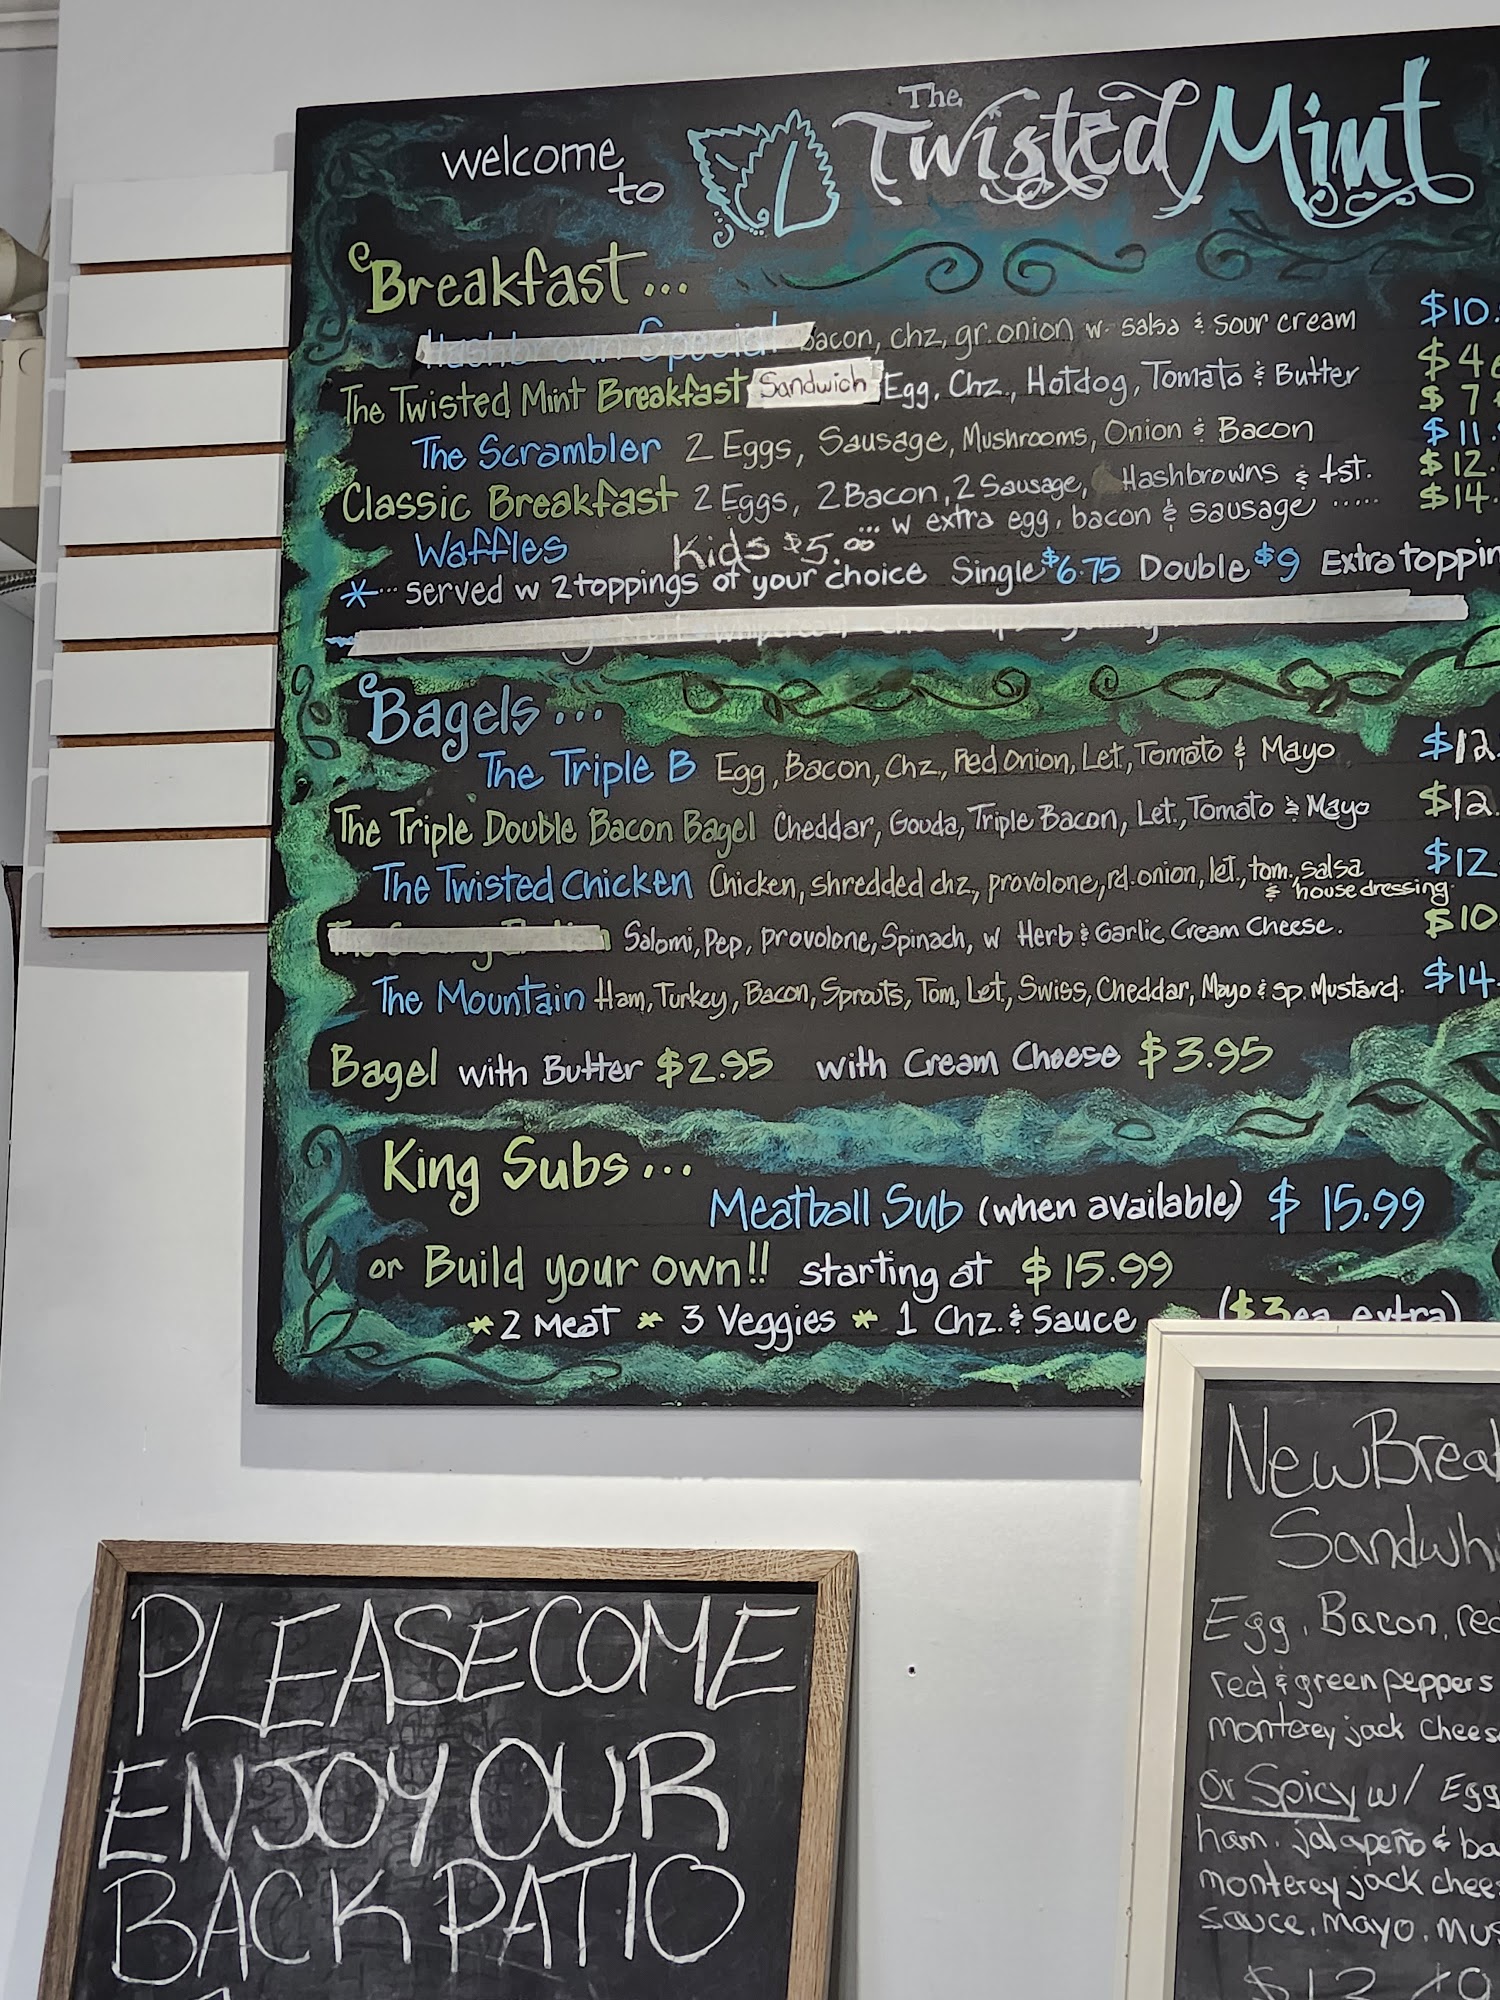 Welcome to The Twisted Mint
Breakfast...
Hashbrown Special Bacon, chz, gr. onion w- salsa & sour cream $10.
The Twisted Mint Breakfast Sandwich Egg, Chz., Hotdog, Tomato & Butter $4
$7
The Scrambler 2 Eggs, Sausage, Mushrooms, Onion & Bacon $11.
Classic Breakfast 2 Eggs, 2 Bacon, 2 Sausage, Hashbrowns & tst. $12.
... w extra egg, bacon & sausage ..... $14.
Waffles Kids $5.00
*... served w 2 toppings of your choice Single $6.75 Double $9 Extra
Bagels...
The Triple B Egg, Bacon, Chz, Red Onion, Let, Tomato & Mayo $12.
The Triple Double Bacon Bagel Cheddar, Gouda, Triple Bacon, Let., Tomato & Mayo $12.
The Twisted Chicken Chicken, shredded chz, provolone, rd. onion, let, tom., salsa $12
& house dressing
Salomi, Pep, provolone, Spinach, w Herb & Garlic Cream Cheese. $10
The Mountain Ham, Turkey, Bacon, Sprouts, Tom, Let, Swiss, Cheddar, Mayo & sp. Mustard. $14.
Bagel with Butter $2.95 with Cream Cheese $3.95
King Subs...
Meatball Sub (when available) $15.99
or Build your own!! starting at $15.99
*2 Meat * 3 Veggies * 1 Chz. & Sauce ($3 ea extra)
New
Egg, Bacon,
red & green peppers
monterey jack
or Spicy w/ Egg
ham, jalapeño &
monterey jack
sauce, mayo,
PLEASE COME
ENJOY OUR
BACK PATIO